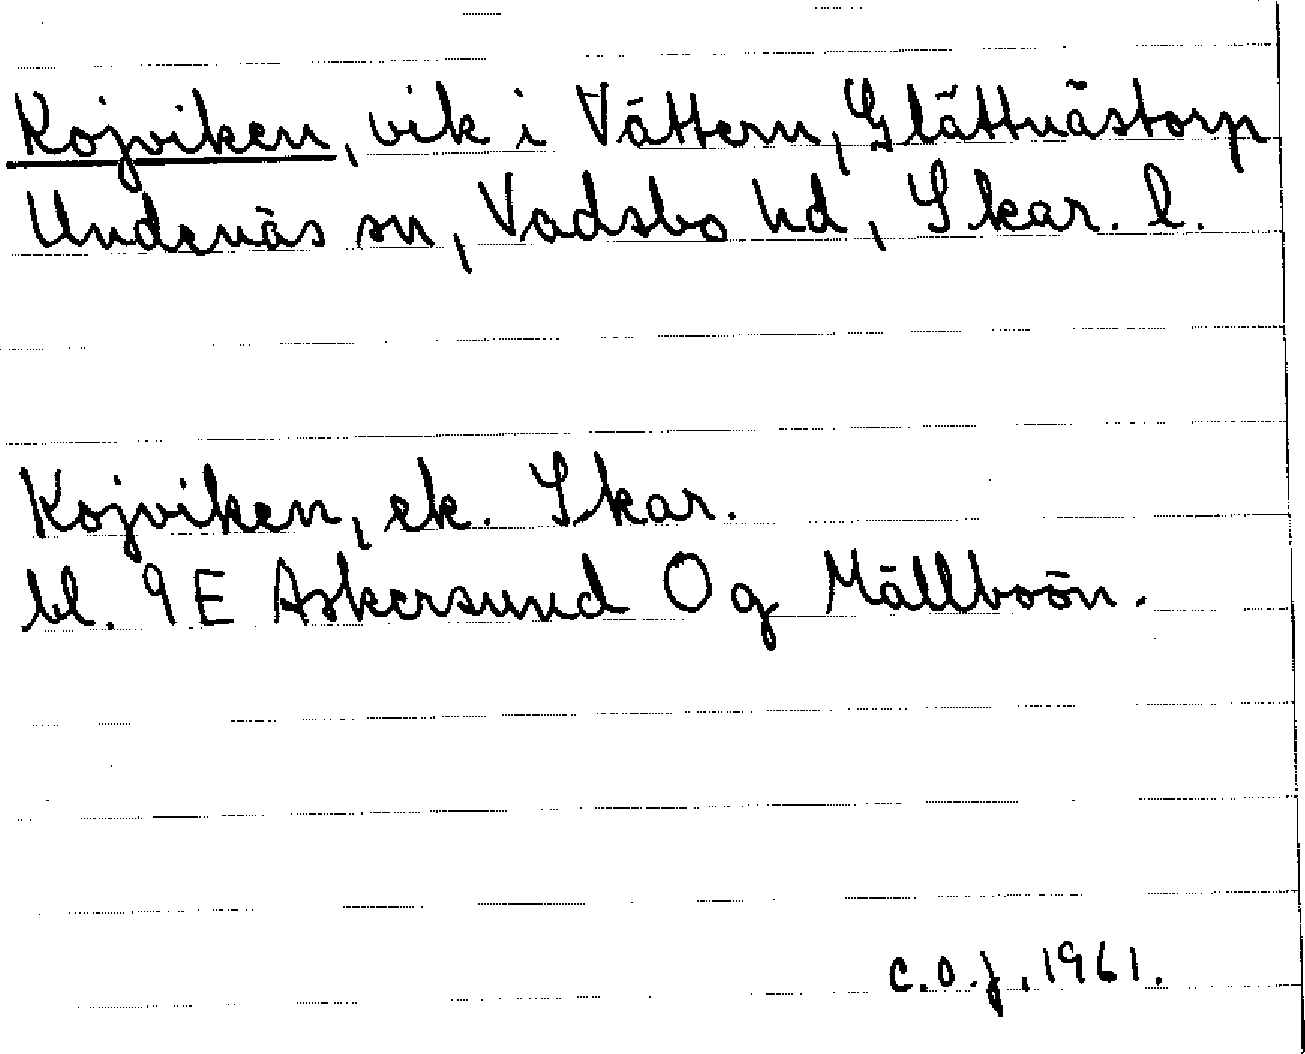 Kojviken, vik i Vättern, Glättnästorp
Undenäs sn, Vadsbo hd, Skar. l.
Kojviken, ek. Skar.
bl. 9E Askersund 0 g Mällboön.
C.O.J. 1961.